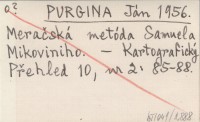 o?
PURGINA Ján 1956.
Meračská metóda Samuela
Mikoviniho. – Kartografický
Přehled 10, nr 2: 85-88.